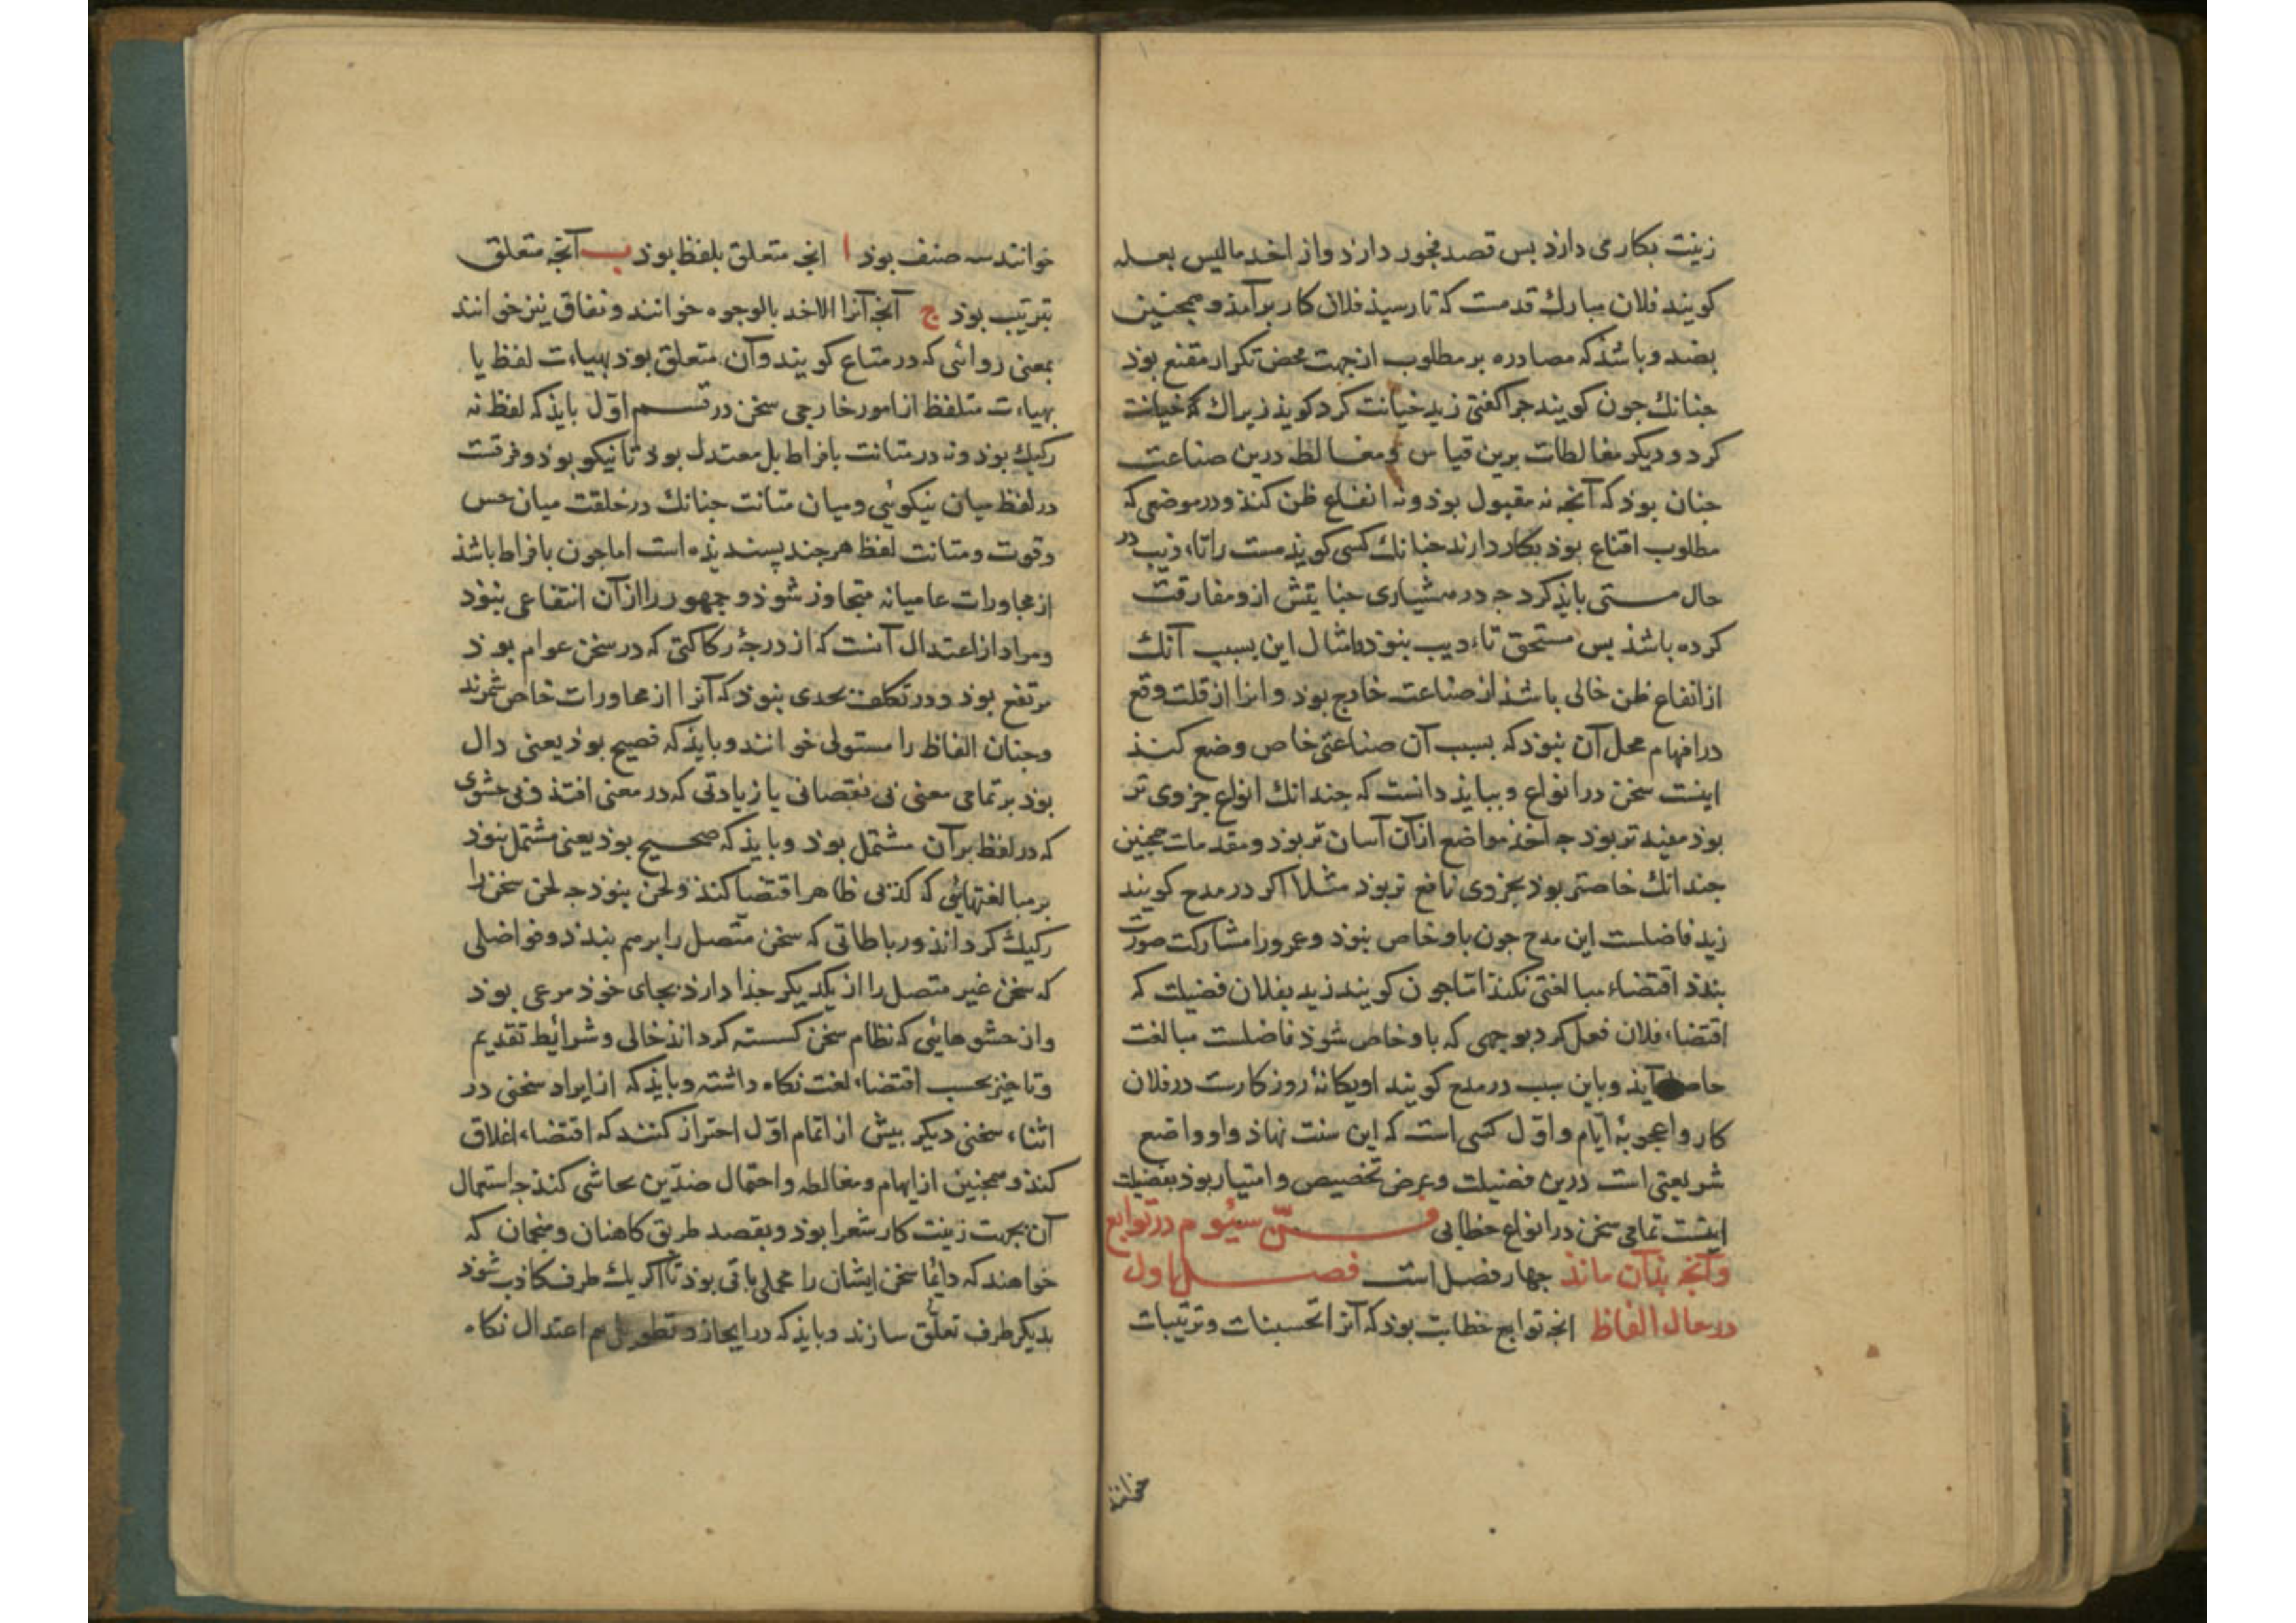 زینت بکار می دارد بس قصد فجور دارد واز اخد مالیس بعله
کویند فلان مبارك قدمست که تا رسیذ فلان کار برآمذ و همجنین
بضد وباشذ که مصادره بر مطلوب از جهت محض تکرار مقنع بوذ
جنانك جون کویند جرا کفتی زید خیانت کرد کویذ زیراك که خیانت
کرد ودیکر مغالطات برین قیاس و مغالطه درین صناعت
جنان بوذ که آنجه نه مقبول بوذ ونه انفاع ظن کنذ ودر موضعی که
مطلوب اقناع بوذ بکار دارند جنانك کسی کویذ مست را تاءذیب در
حال مستی بایذ کرد جه در هشیاری جنایتش ازو مفارقت
کرده باشذ بس مستحق تاءدیب بنوذ وامثال این بسبب آنك
از انفاع ظن خالی باشذ از صناعت خارج بوذ وانرا از قلت وقع
در افهام محل آن بنوذ که بسبب آن صناعتی خاص وضع کنند
اینست سخن در انواع وببایذ دانست که جندانك انواع جزوی تر
بوذ مفید تر بوذ جه اخذ مواضع ازان آسان تر بوذ ومقدمات همجنین
جندانك خاصتر بوذ بجزوی نافع تر بوذ مثلا اکر در مدح کویند
زید فاضلست این مدح جون باو خاص بنوذ وعمرو را مشارکت صورت
بندذ اقتضاء مبالغتی نکند امّا جون کویند زید بفلان فضیلت که
اقتضاء فلان فعل کرد بوجهی که باو خاص شوذ فاضلست مبالغت
حاصل آیذ وباین سبب در مدح کویند او یکانۀ روزکارست در فلان
کار واعجوبۀ ایّام واوّل کسی است که این سنت نهاذ واو واضع
شریعتی است درین فضیلت وغرض تخصیص وامتیاز بوذ بفضیلت
اینست تمامی سخن در انواع خطابی فـنّ سیُوم در توابع
وآنجه بذان ماند جهار فصل است فصل اول
در حال الفاظ انجه توابع خطابت بوذ که آنرا تحسینات وتزیینات
خوانند
خوانند سه صنف بوذ ا انجه متعلق بلفظ بوذ ب آنجه متعلق
بترتیب بوذ ج آنجه آنرا الاخد بالوجوه خوانند ونفاق نیز خوانند
بمعنی روائی که در متاع کویند وآن متعلق بوذ بهیاءت لفظ یا
بهیاءت متلفظ از امور خارجی سخن در قسم اوّل بایذ که لفظ نه
رکیك بوذ ونه در متانت بافراط بل معتدل بوذ تا نیکو بوذ وفرقست
در لفظ میان نیکوئی ومیان متانت جنانك در خلقت میان حسن
وقوت ومتانت لفظ هرجند پسندیذه است اما جون بافراط باشذ
از محاورات عامیانه متجاوز شوذ وجمهور را ازآن انتفاعی بنوذ
ومراد از اعتدال آنست که از درجۀ رکاکتی که در سخن عوام بوذ
مرتفع بوذ ودر تکلف بحدی بنوذ که آنرا از محاورات خاص شمرند
وجنان الفاظ را مستولی خوانند وبایذ که فصیح بوذ یعنی دال
بوذ بر تمامی معنی بی نقصانی یا زیادتی که در معنی افتذ وبی حشوی
که در لفظ بر آن مشتمل بوذ وبایذ که صحیح بوذ یعنی مشتمل بنوذ
بر مبالغتهائی که کذبی ظاهر اقتضا کنذ ولحن بنوذ جه لحن سخن را
رکیك کرداند ورباطاتی که سخن متصل را برهم بندذ وفواصلی
که سخن غیر متصل را از یکدیکر جذا دارذ بجای خوذ مرعی بوذ
واز حشوهائی که نظام سخن کسسته کرداند خالی وشرایط تقدیم
وتاخیر بحسب اقتضاء لغت نکاه داشته وبایذ که از ایراد سخنی در
اثناء سخنی دیکر بیش از اتمام اوّل احتراز کنند که اقتضاء اغلاق
کنذ وهمجنین از ایهام ومغالطه واحتمال ضدّین تحاشی کنذ جه استعمال
آن بجهت زینت کار شعرا بوذ وبقصد طریق کاهنان ومنجمان که
خواهند که دایما سخن ایشان را محملی باقی بوذ تا اکر یك طرف کاذب شوذ
بدیکر طرف تعلّق سازند وبایذ که در ایجاز وتطویل هم اعتدال نکاه